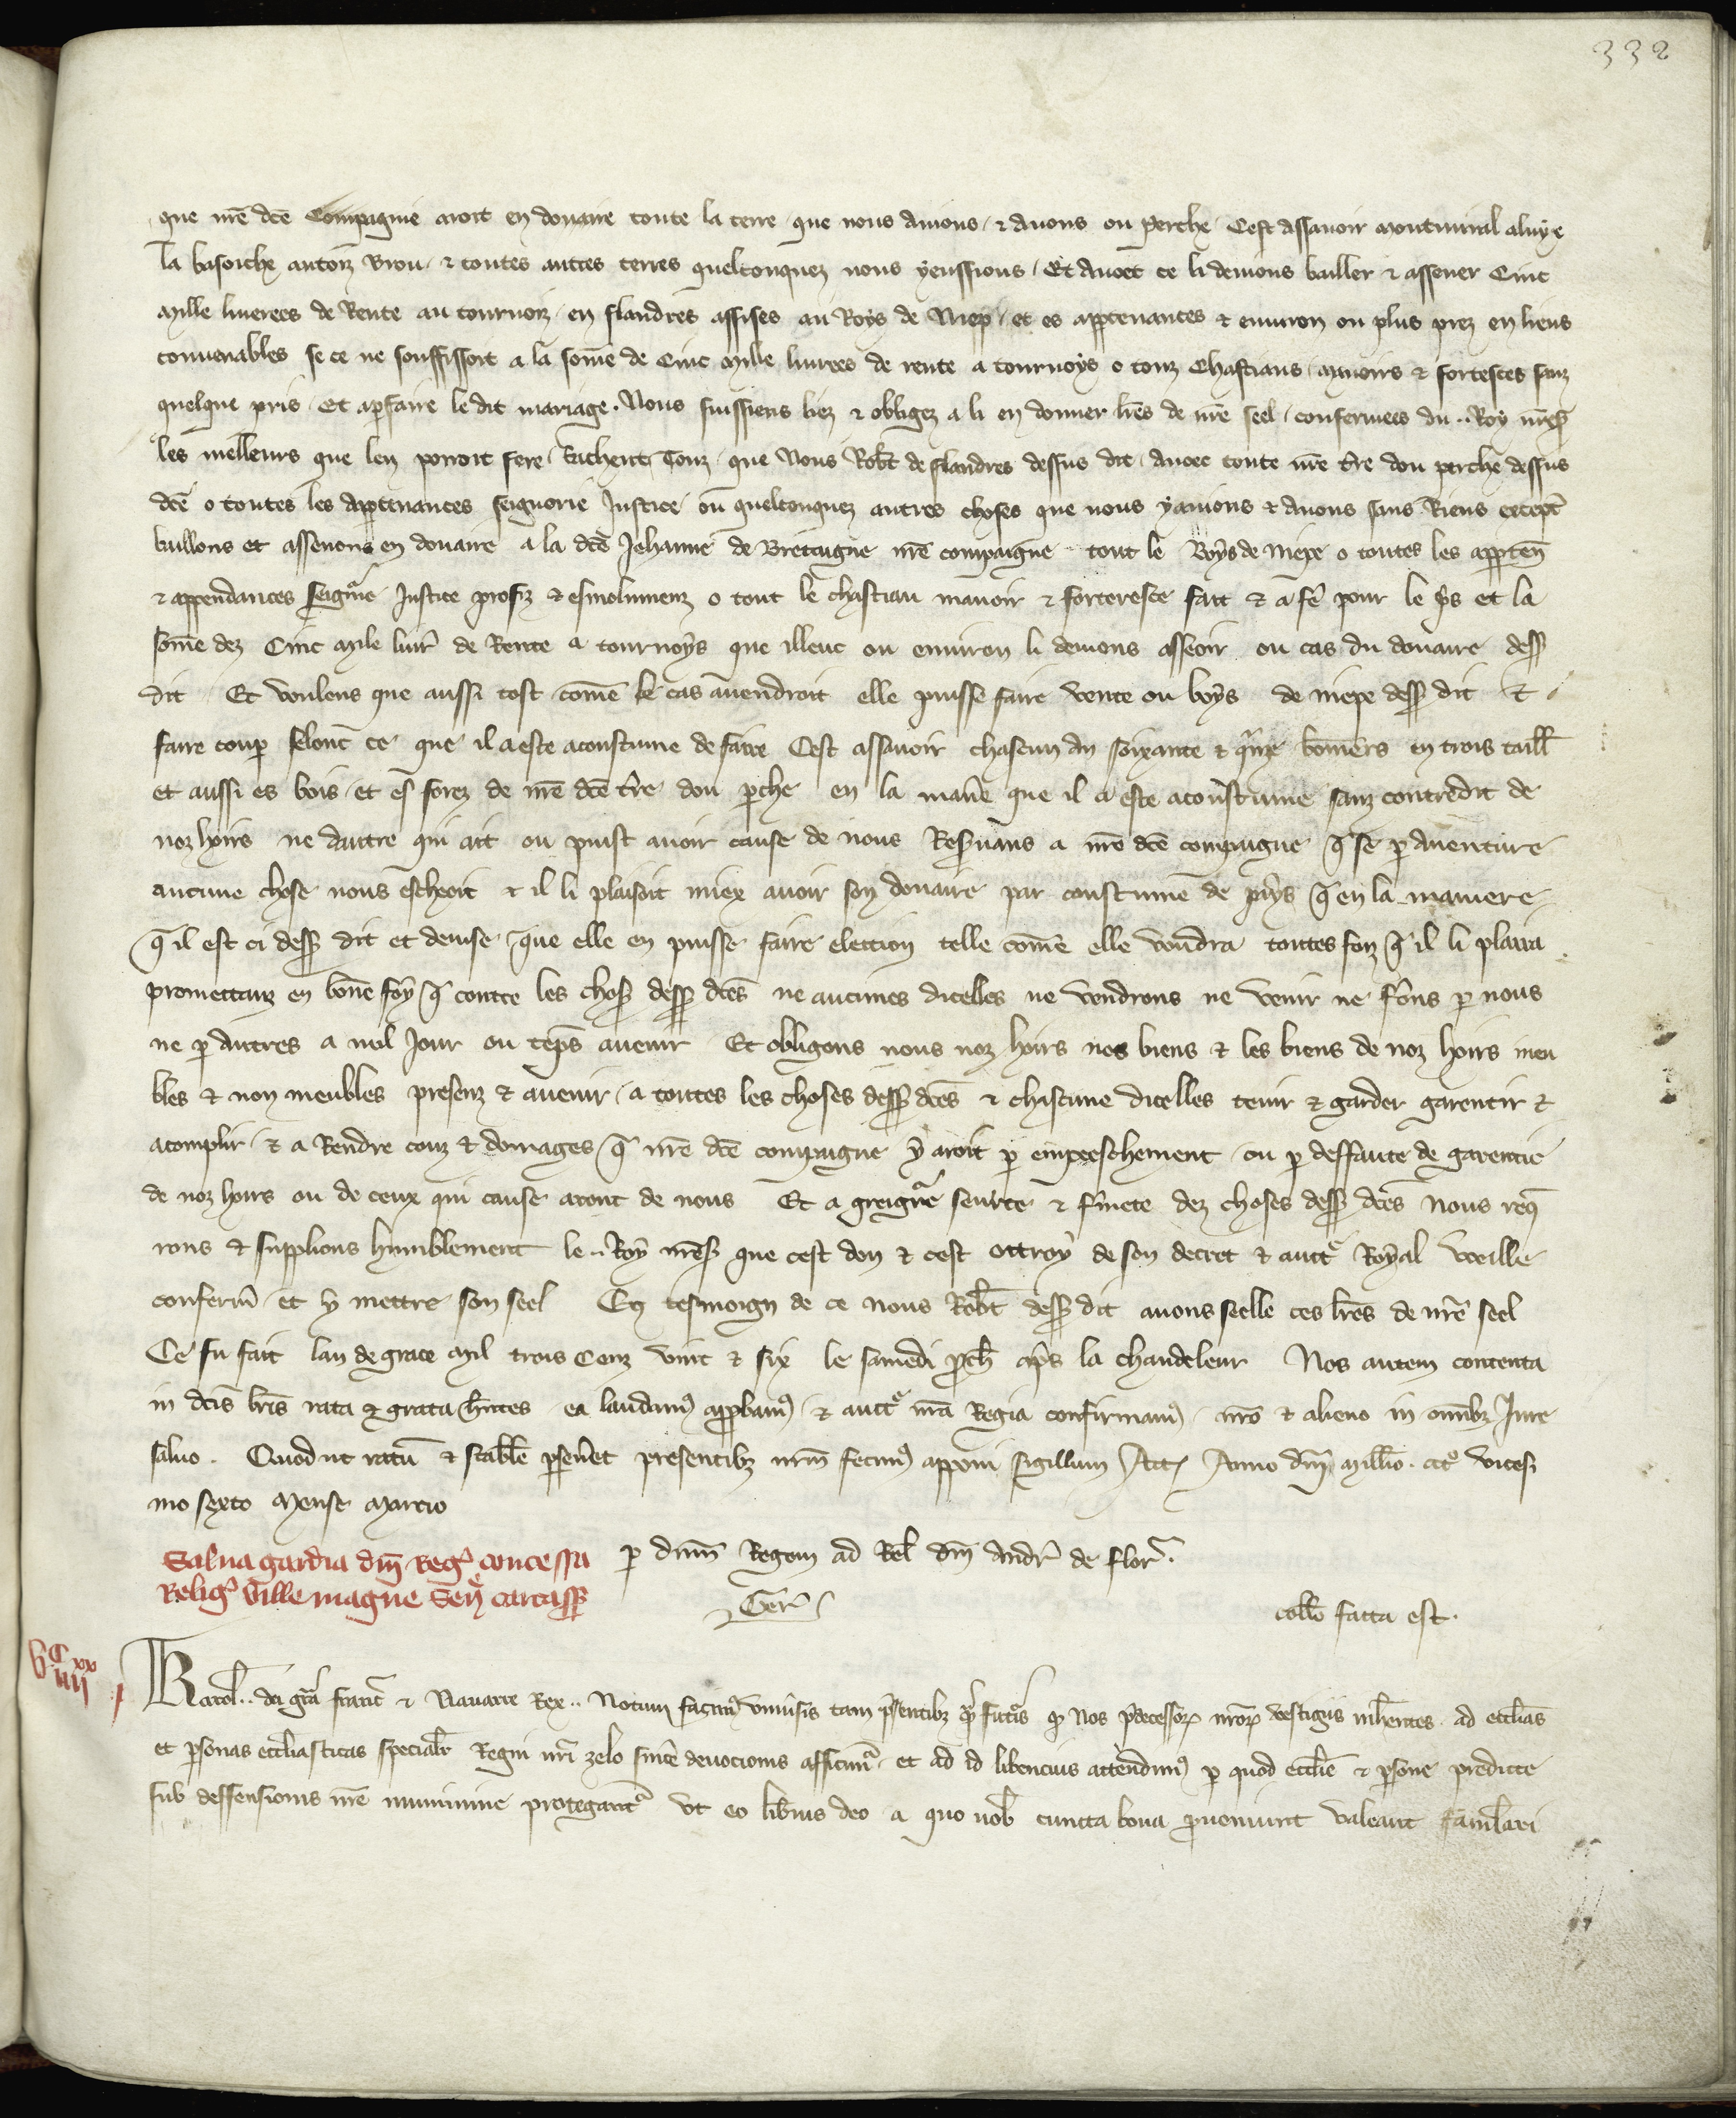 332
que nr̃e dc̃e Compaignie aroit en douaire toute la terre que nous auions & auons ou perche Cest assauoir montmiral aluye
la basoiche autoiz Brou & toutes autres terres quelconquez nous yeussions Et auoec ce li deuions bailler & assener Cinc
Mille liuerees de Rente au tournoiz en flandres assises au Boys de Niep et es appartenances & enuiron ou plus prez en lieus
conuenables se ce ne souffissoit a la som̃e de Cinc Mille liurees de rente a tournoys o touz Chastiaus manoirs & forteresces sanz
quelque pris Et a parfaire le dit mariage. Nous fuissiens liez & obligez a li en donner lr̃es de nr̃e seel confermees du .. Roy nr̃eꝭ
les mellieurs que len porroit fere Sachent Touz que Nous Rob̃t de flandres dessus dit auoec toute nr̃e t̃re dou perche dessus
dc̃e o toutes les appartenances seignorie Justice ou quelconquez autres choses que nous yauions & auons sans Riens except̃
baillons et assenons en douaire a la dc̃e Jehanne de Bretaigne nr̃e compaigne tout le Boys de niepe o toutes les apparten̄
& appendances seign̄rie Justice profiz & esmolumenz o tout le chastiau manoir & forteresce fait & a fẽ pour le pris et la
som̃e dez Cinc Mile liur̃ de Rente a tournoys que illeuc ou enuiron li deuons asseoir ou cas du douaire dess̃
dit Et voulens que aussi tost com̃e le cas auendroit elle puisse faire vente ou boys de niepe dess̃ dit &
faire coup selonc ce que il a este acoustume de faire Cest assauoir chascun an soixante & quinze bonniers en trois taill̃
et aussi es bois et es forez de nr̃e dc̃e t̃re dou ꝑche en la manie̾ que il a este acoustume sanz contredit de
noz hoirs ne dautre qui ait ou puist auoir cause de nous Reseruans a nr̃e dc̃e compaigne q̃ se ꝑ auenture
aucune chose nous escheoit & il li plaisoit miex auoir son douaire par coustume de pays q̃ en la maniere
q̃ il est ci dess̃ dit et deuise que elle en puisse faire election telle com̃e elle voudra toutes foiz q̃ il li plaira
promettanz en bon̄e foy q̃ contre les chos̃ dess̃ dc̃es ne aucunes dicelles ne vendrons ne venir ne fer̃ons ꝑ nous
ne ꝑ autres a nul Jour ou temps auenir Et obligons nous noz hoirs nos biens & les biens de noz hoirs meu
bles & non meubles presenz & auenir a toutes les choses dess̃ dc̃es & chascune dicelles tenir & garder garentir &
acomplir & a Rendre couz & domages q̃ nr̃e dc̃e compaigne y aroit ꝑ empeeschement ou ꝑ deffaute de garentie
de noz hoirs ou de ceux qui cause aront de nous Et a greign̄re seurte & fermete dez choses dess̃ dc̃es Nous req̃
rons & supplions humblement le .. Roy nr̃eꝭ que cest don & cest ottroy de son decret & auct̾ Royal veille
conferm̃ et y mettre son seel En tesmoign de ce nous Rob̃t dess̃ dit auons seelle ces lr̃es de nr̃e seel
Ce fu fait lan de grace Mil trois Cenz vint & six le samedi p̃ch apr̃s la chandeleur Nos autem contenta
in dc̃is lr̃is rata & grata hñtes ea laudamꝰ approbamꝰ & auct̾ nr̃a Regia confirmamꝰ nr̃o & alieno in om̃ibꝫ Jure
saluo. Quod ut ratũ & stabile perseueret presentibꝫ nr̃m fecimꝰ apponi sigillum Act̃ Anno dn̄i Mill̃o ccc̊ vices
mo sexto Mense Marcio
ꝑ dn̄m Regem ad Rel̃ dn̄i Andr̃ de flor̃.
Ger̃
coll̃o facta est.
Salua gardia dn̄i Reg̾ concessa
Relig̾ ville magne Sen̄ carcass̃
Karol̃ .. dei gr̃a franc̃ & Nauarre Rex .. Notum facimꝰ vniu̾sis tam p̃sentibꝫ q̃ fut̾is ꝙ Nos p̃decessorꝝ nr̃orꝝ vestigiis inh̾entes ad eccl̃ias
et ꝑsonas eccl̃iasticas special̃r Regni nr̃i zelo sincẽ deuocionis afficimur et ad id libencius attendimꝰ ꝑ quod eccl̃ie & ꝑsone predicte
sub deffensionis nr̃e munimine protegantur vt eo lib̾ius deo a quo nob̃ cuncta bona proueniunt valeant famulari